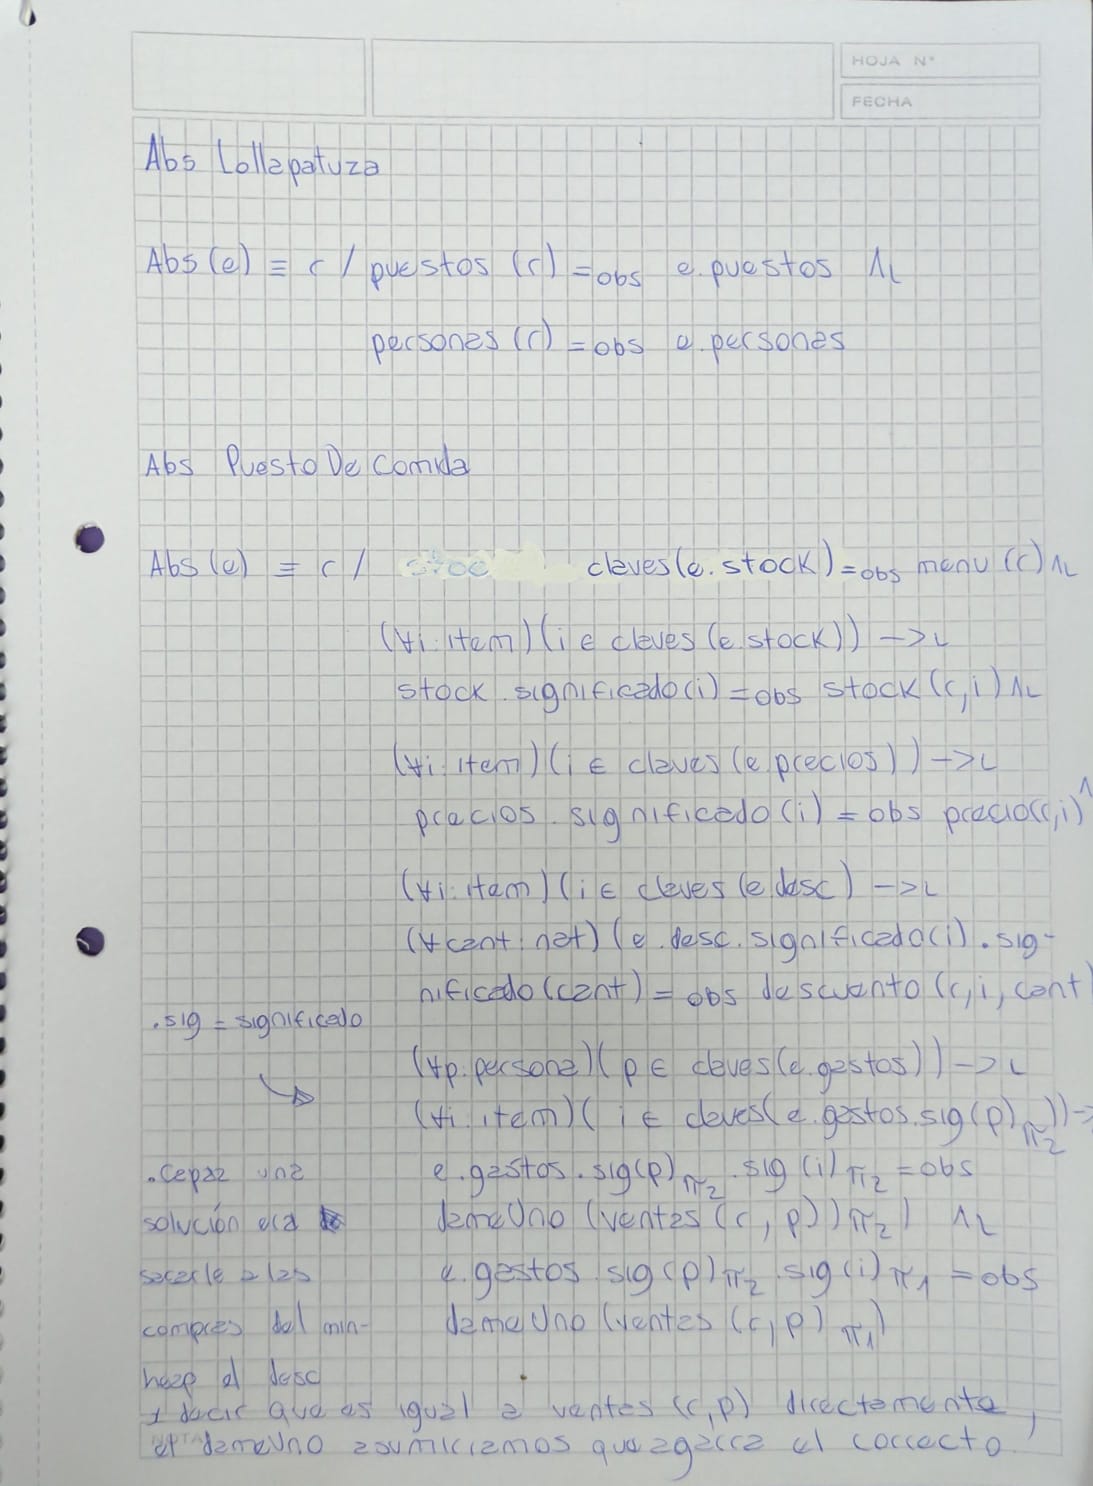 HOJA N°
FECHA
Abs Lollapatuza
Abs (e) ≡ c / puestos (c) =obs e.puestos ∧L
personas (c) =obs e.personas
Abs PuestoDeComida
Abs (e) ≡ c / claves(e.stock) =obs menu (c) ∧L
(∀i:item)(i ∈ claves (e.stock)) ->L
stock.significado(i) =obs stock (c,i) ∧L
(∀i:item)(i ∈ claves (e.precios)) ->L
precios.significado(i) =obs precio(c,i) ∧
(∀i:item)(i ∈ claves (e.desc) ->L
(∀cant:nat)(e.desc.significado(i).sig-
nificado(cant) =obs descuento (c,i,cant)
.sig = significado
(∀p:persona)(p ∈ claves(e.gastos)) ->L
(∀i:item)( i ∈ claves(e.gastos.sig(p)π2)) ->
e.gastos.sig(p)π2.sig(i)π2 =obs
dameUno (ventas (c,p))π2) ∧L
e.gastos.sig(p)π2.sig(i)π1 =obs
dameUno (ventas (c,p)π1)
.Capaz una
solución era
sacarle a las
compras del min-
heap el desc
y decir que es igual a ventas (c,p) directamente,
el dameUno asumiriamos que agarra el correcto